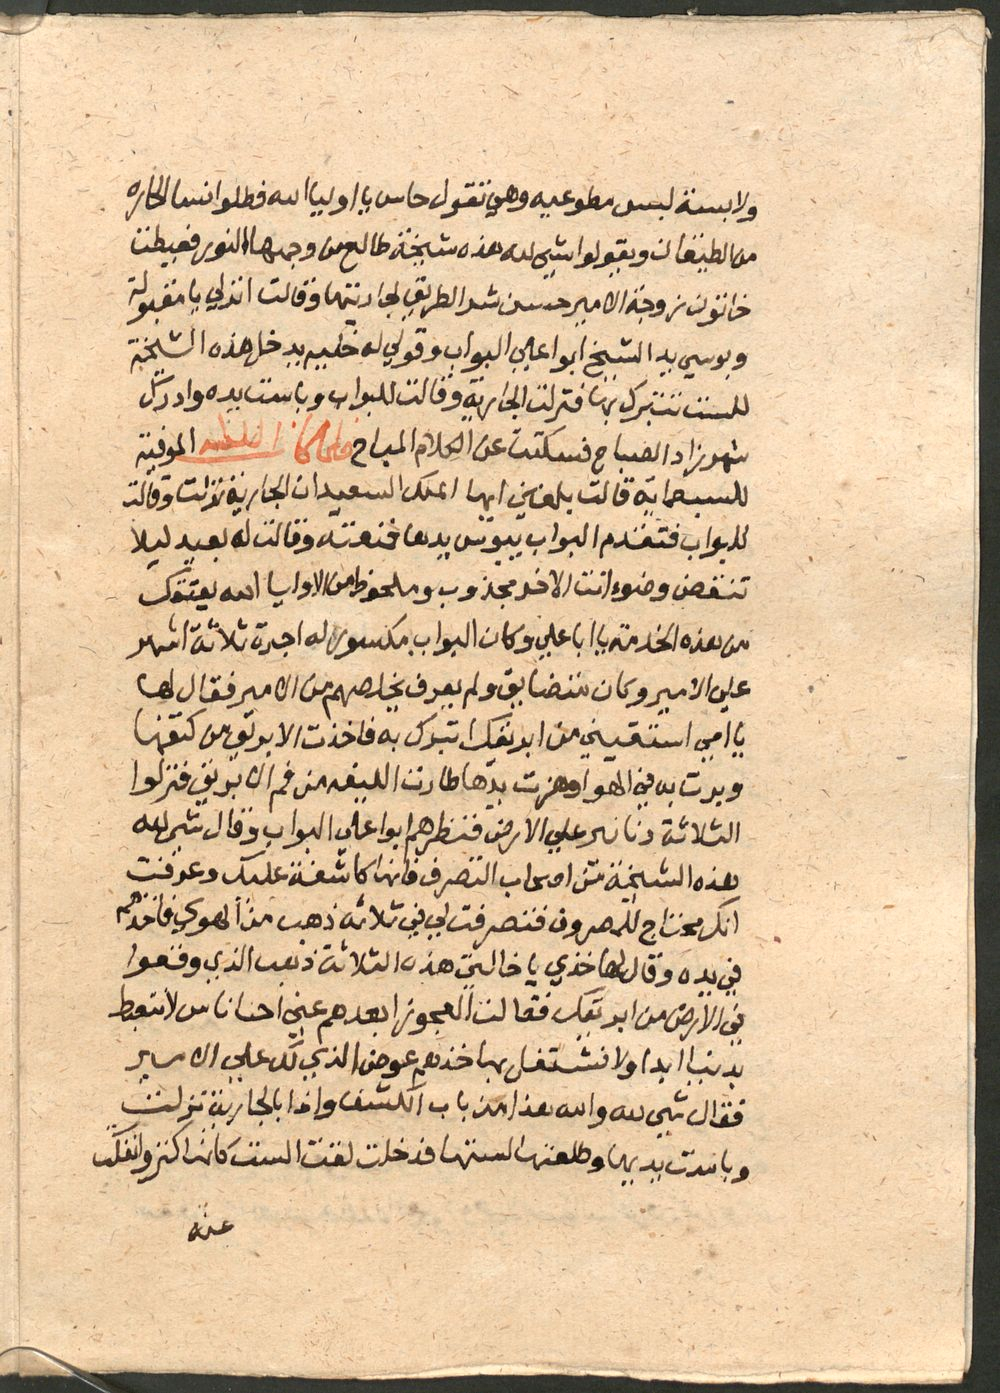 ولابسة لبس مطوعيه وهي تقول حاس يا اوليا الله فطلوا نسا الحاره
من الطيقان ويقولوا شي لله هذه شيخة طالع من وجهها النور فعيطت
خاتون زوجة الامير حسن شر الطريق لجاريتها وقالت انزلي يا مقبولة
وبوسي يد الشيخ ابوا علي البواب وقولي له خليه يدخل هذه الشيخة
للست تتبرك بها فنزلت الجارية وقالت للبواب وباست يده وادرك
شهرزاد الصباح فسكتت عن الكلام المباح فلما كانت الليلة الموفية
للسبعماية قالت بلغني ايها الملك السعيد ان الجارية نزلت وقالت
للبواب فتقدم البواب يبوس يدها فمنعته وقالت له بعيد ليلا
تنقض وضوء انت الاخر مجذوب وملحوظ من الاوليا الله يعتقك
من هذه الخدمة يا ابا علي وكان البواب مكسور له اجرة ثلاثة اشهر
علي الامير وكان متضايق ولم يعرف يخلصهم من الامير فقال لها
يا امي اسقيني من ابريقك اتبرك به فاخذت الابريق من كتفها
وبرت به في الهوا وهزت يدها طارت الليفه من فم الابريق فنزلوا
الثلاثة دنانير علي الارض فنظرهم ابوا علي البواب وقال شي لله
هذه الشيخة من اصحاب التصرف فانها كاشفة عليك وعرفت
انك محتاج للمصروف فتصرفت لي في ثلاثه ذهب من الهوي فاخذهم
في يده وقال لها خذي يا خالتي هذه الثلاثة ذهب الذي وقعوا
في الارض من ابريقك فقالت العجوز ابعدهم عني احنا ناس لا نتعبط
بدنيا ابدا ولا نشتغل بها خذهم عوض الذي لك علي الامير
فقال شي لله والله هذا من باب الكشف واذا بالجارية نزلت
وباست يديها وطلعتها لستها فدخلت لقت الست كانها كنز وانفكت
عنه